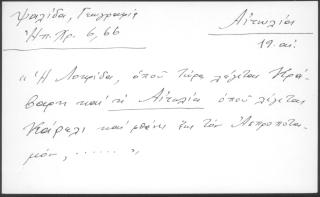 Ψαλίδα, Γεωγραφία
Ἠπ. Χρ. 6, 66
Αἰτωλία
19. αἰ.
« Ἡ Λοκρίδα, ὁποῦ τώρα λέγεται Κρά-
βαρη καὶ ἡ Αἰτωλία ὁποῦ λέγεται
Κάρελι καὶ φθάνει ἕως τὸν Ἀσπροπότα-
μον, ...... »,